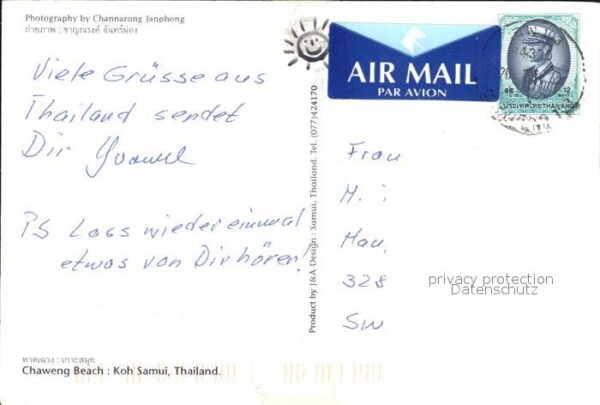 Photography by Channarong Janphong
ถ่ายภาพ : ชาญณรงค์ จันทร์ผ่อง
Viele Grüsse aus
Thailand sendet
Dir
PS Lass wiedereinmal
etwas von Dir hören!
หาดเฉวง : เกาะสมุย
Chaweng Beach : Koh Samui, Thailand.
Product by J&A Design : Samui, Thailand. Tel. (077)424170
AIR MAIL
PAR AVION
๑๒ 12
ประเทศไทย THAILAND
Frau
M.
328
privacy protection
Datenschutz